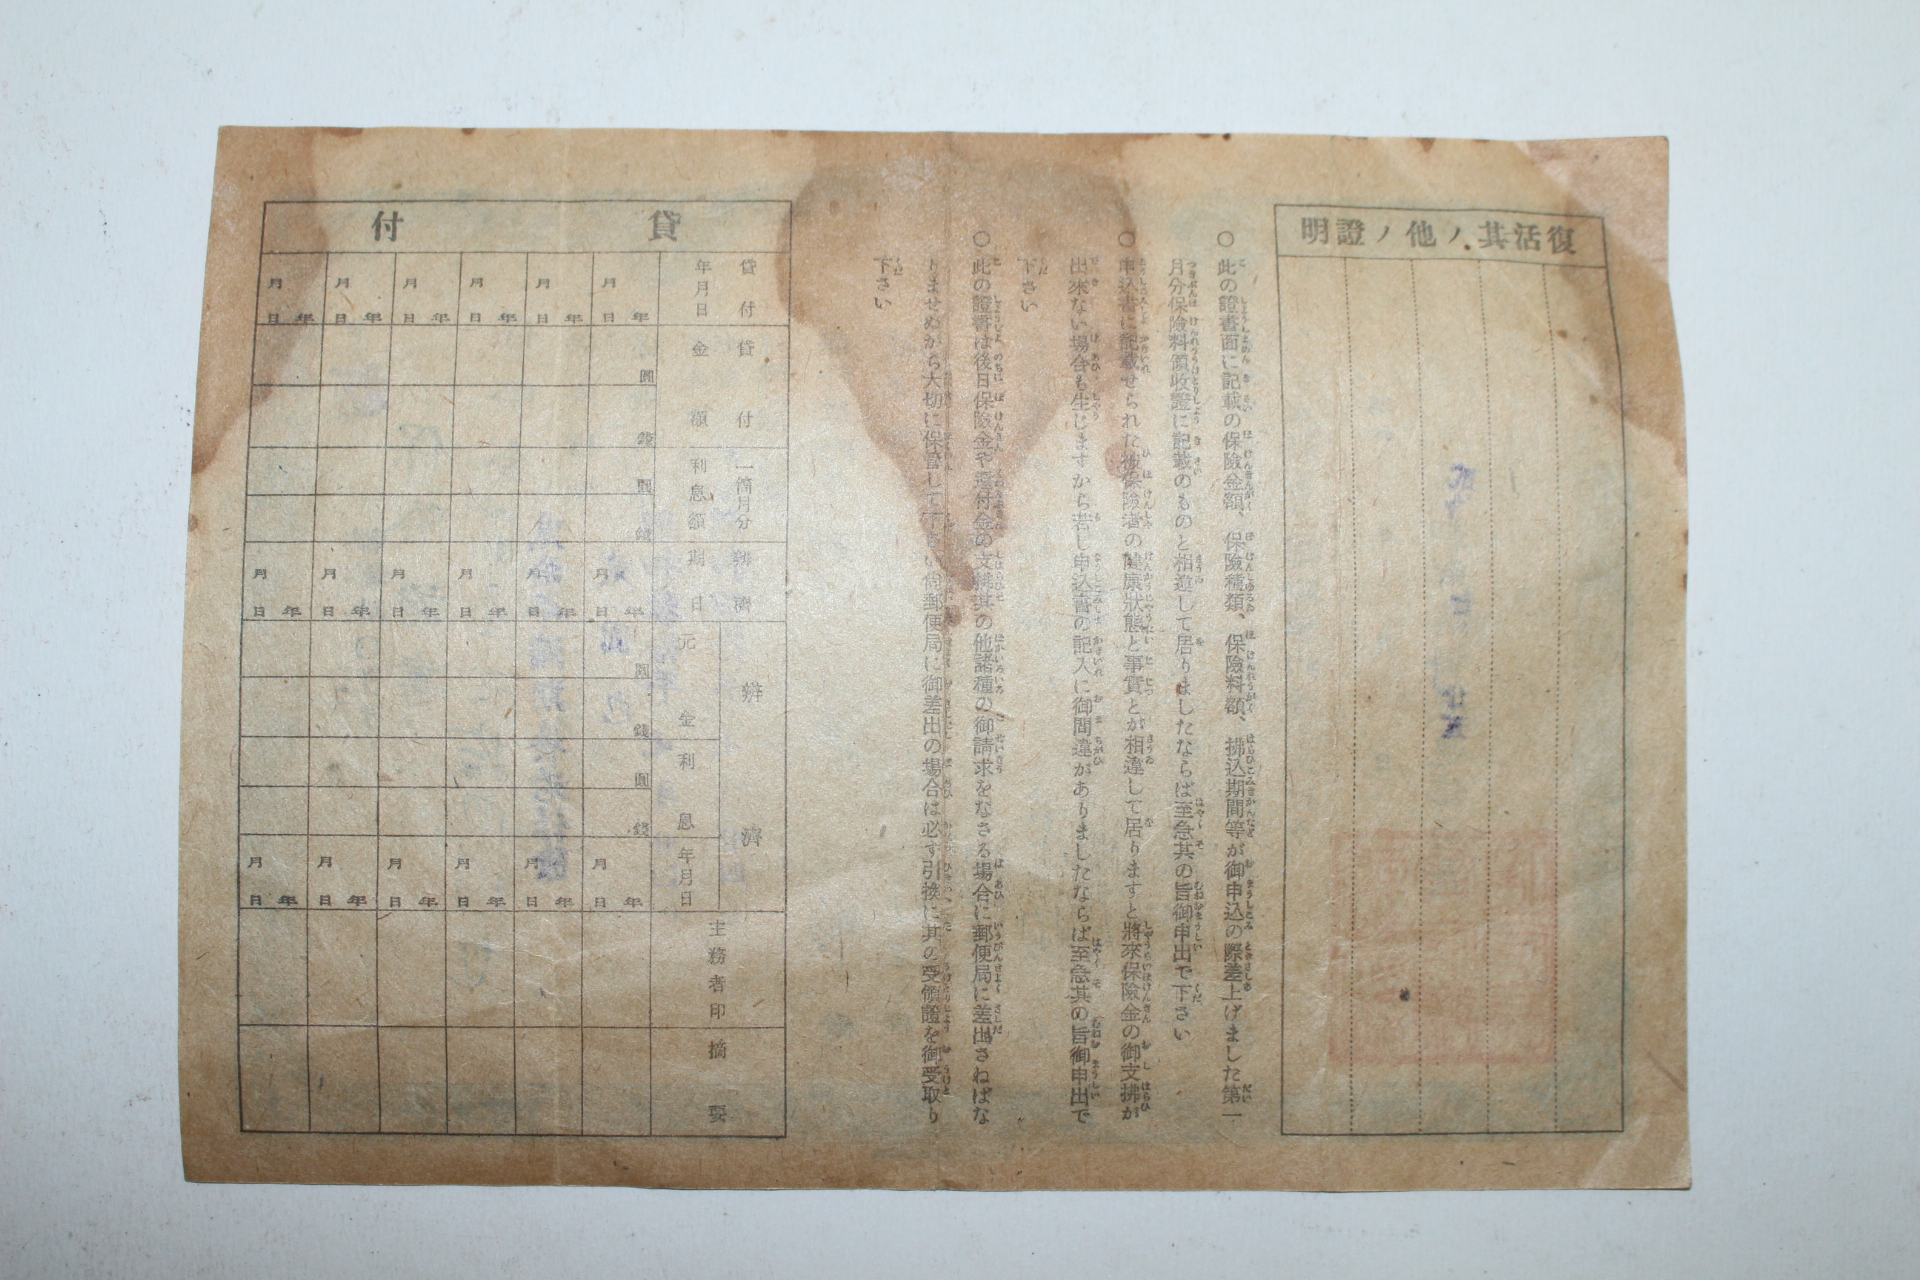 復活其ノ他ノ證明
○此の證書面に記載の保險金額、保險種類、保險料額、拂込期間等が御申込の際差上げました第一
月分保險料領收證に記載のものと相違して居りましたならば至急其の旨御申出で下さい
○申込書に記載せられた被保險者の健康狀態と事實とが相違して居りますと將來保險金の御支拂が
出來ない場合も生じますから若し申込書の記入に御間違がありましたならば至急其の旨御申出で
下さい
○此の證書は後日保險金や還付金の支拂其の他諸種の御請求をなさる場合に郵便局に差出さねばな
りませぬから大切に保管して下さい尙郵便局に御差出の場合は必ず引換に其の受領證を御受取り
下さい
貸付
貸付年月日
貸付金額
一箇月分利息額
辨濟期日
辨濟
元金
利息
年月日
主務者印
摘要
年月日 年月日 年月日 年月日 年月日 年月日
圓
錢
圓
錢
年月日 年月日 年月日 年月日 年月日 年月日
圓
錢
圓
錢
年月日 年月日 年月日 年月日 年月日 年月日